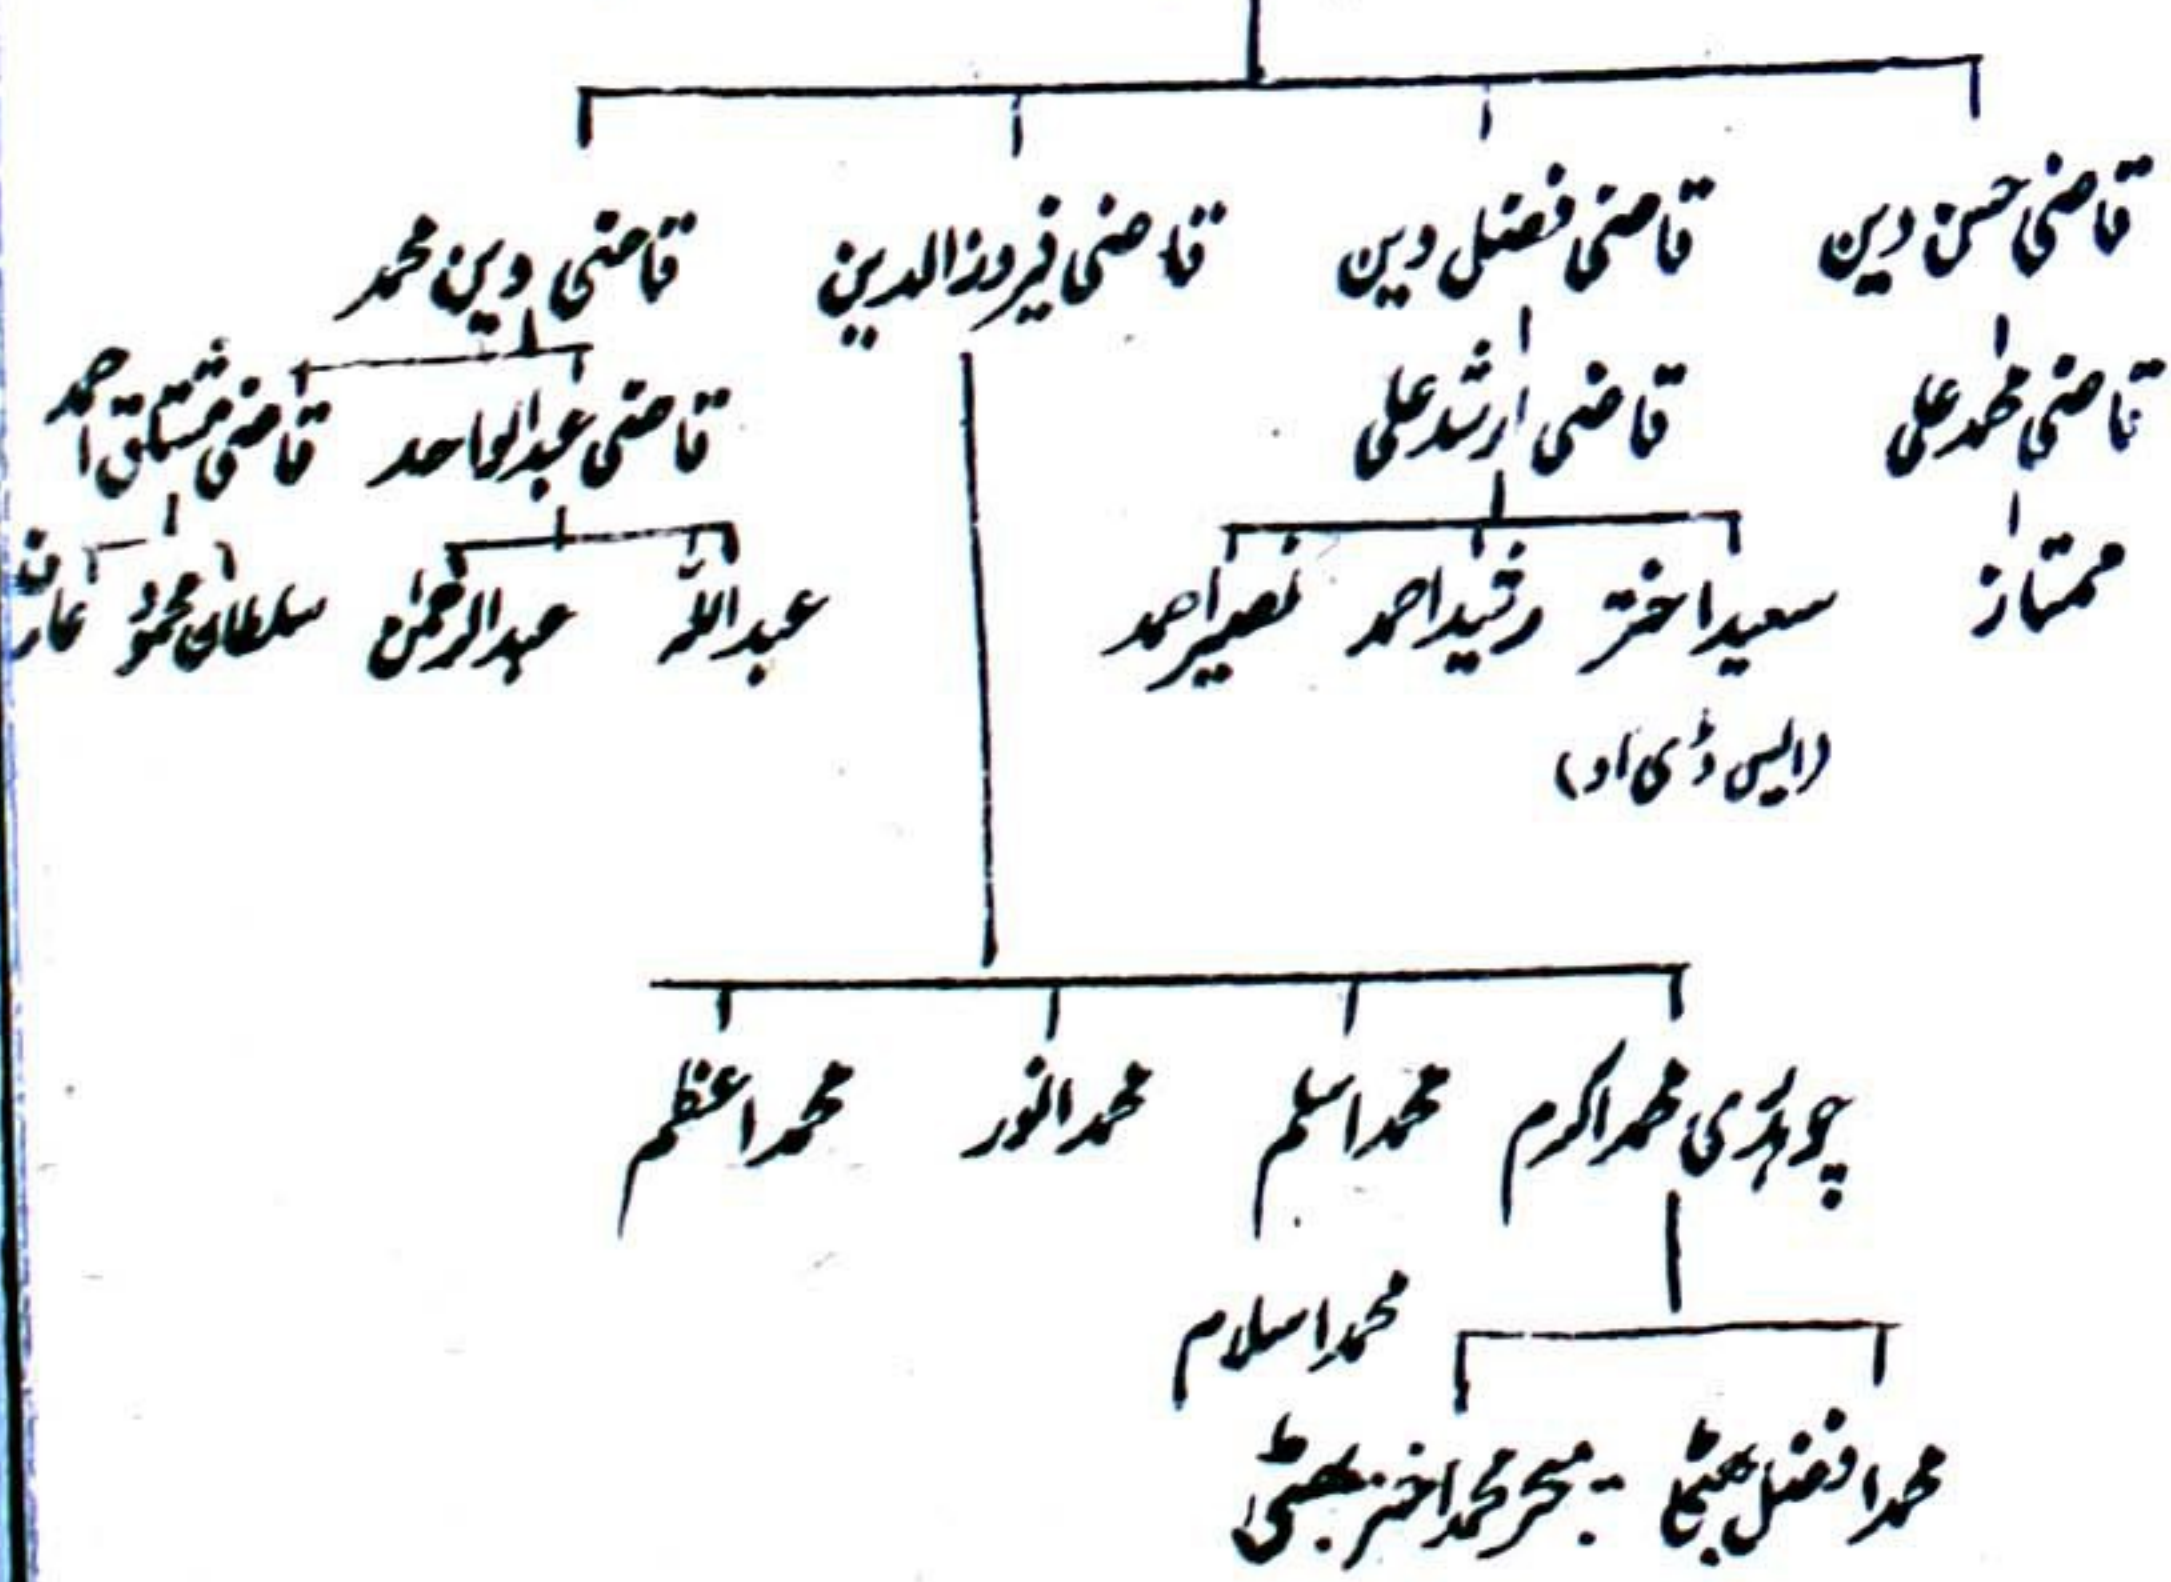 قاضی حسن دین قاضی فضل دین قاضی فیروزالدین قاضی دین محمد
قاضی محمد علی قاضی ارشد علی قاضی عبدالواحد قاضی مشتاق احمد
ممتاز سعید اختر رشید احمد نصیر احمد عبداللہ عبدالرحمٰن سلطان محمود
(ایس ڈی او)
چوہدری محمد اکرم محمد اسلم محمد انور محمد اعظم
محمد اسلام
محمد افضل بھٹی - میجر محمد اختر بھٹی